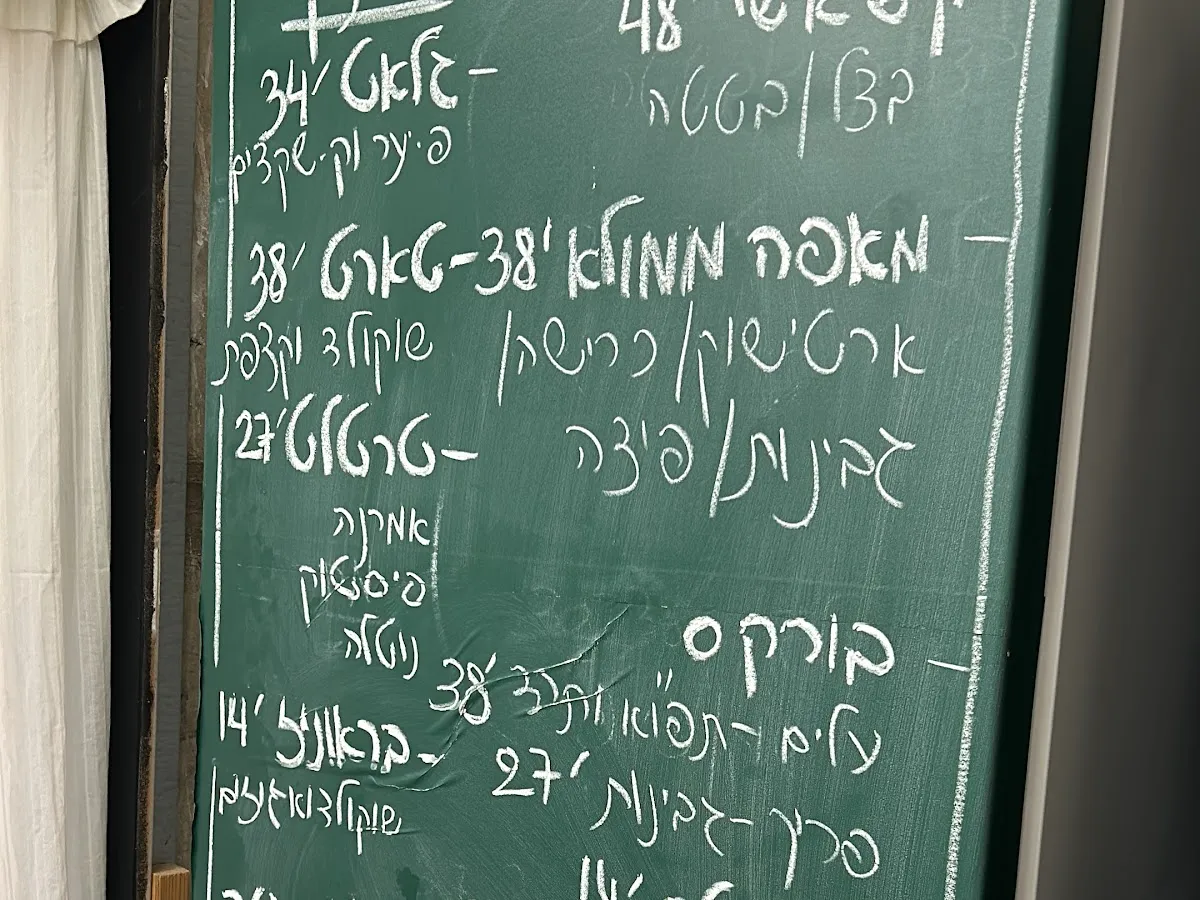 48'
בצל/בטטה
מאפה ממולא 38'
ארטישוק/כרישה/
גבינות/פיצה
בורקס
עלים - תפו"א ותרד 38'
פריך - גבינות 27'
14'
- גלאט 34'
פ. יער וק. שקדים
- טארט 38'
שוקולד וקצפת
- טרטלט 27'
אמרנה
פיסטוק
נוטלה
- בראוניז 14'
שוקולד ואגוזים